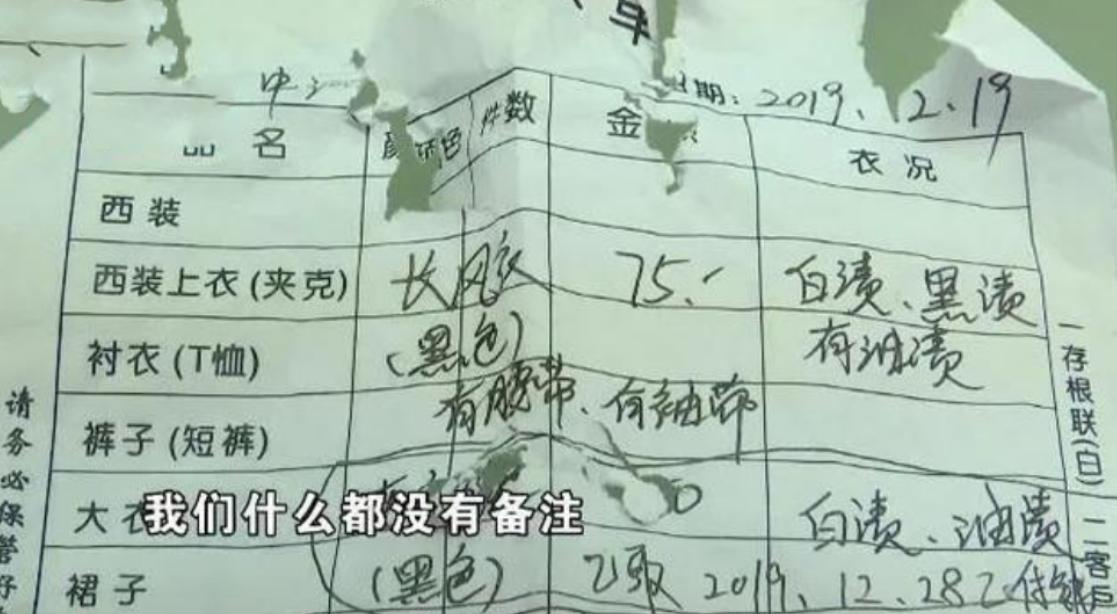 单
期：2019.2.19
品名 颜色 件数 金 衣况
西装
西装上衣(夹克) 长风衣 75.- 白渍、黑渍
衬衣(T恤) (黑色) 有油渍
有腰带、有袖带
裤子(短裤)
大衣 白渍、油渍
我们什么都没有备注
裙子 (黑色) 已取 2019.12.28
请务必保管好
一存根联(白)
二客户